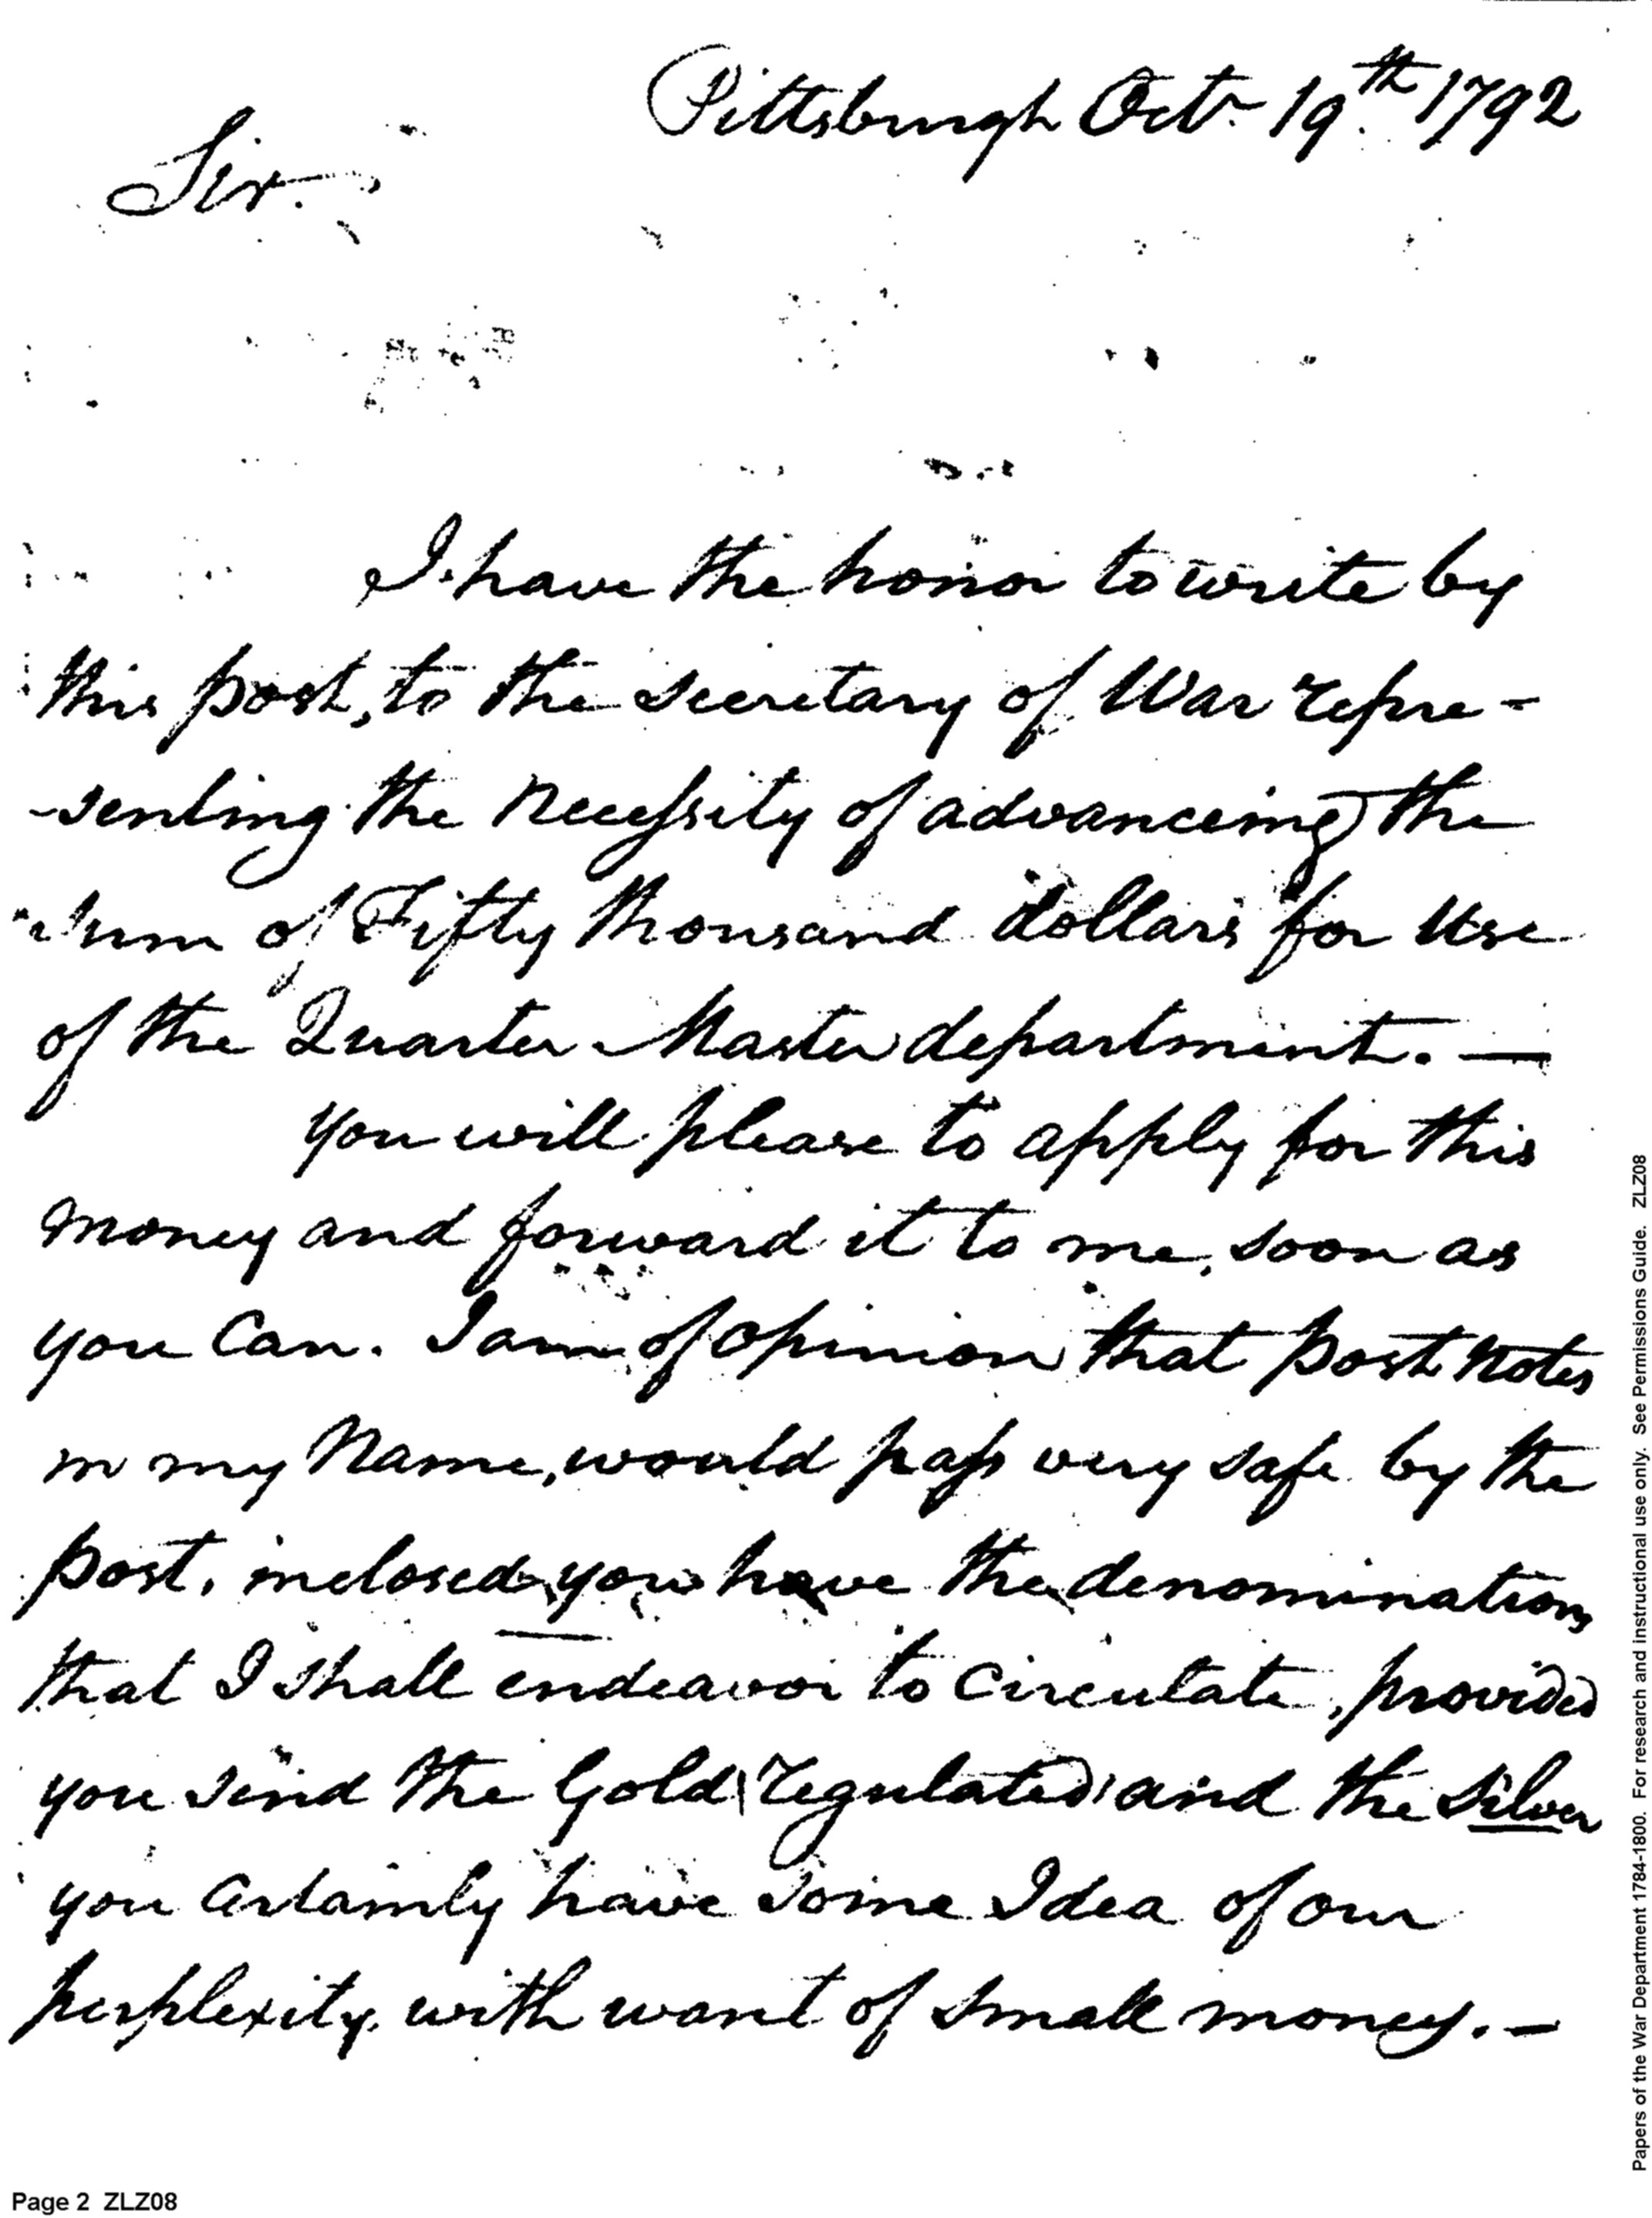 Pittsburgh Octr 19th 1792
Sir.
I have the honor to write by
this post, to the secretary of War repre-
-senting the Necessity of advanceing the
sum of Fifty thousand dollars for Use
of the Quarter Master department. —
you will please to apply for this
money and forward it to me, soon as
you Can. I am of opinion that post Notes
in my Name, would pass very safe by the
post, inclosed you have the denominations
that I shall endeavor to Circulate, provided
you send the Gold regulated and the Silver
you Certainly have some Idea of our
perplexity, with want of small money. —
Page 2 ZLZ08
Papers of the War Department 1784-1800. For research and instructional use only. See Permissions Guide. ZLZ08